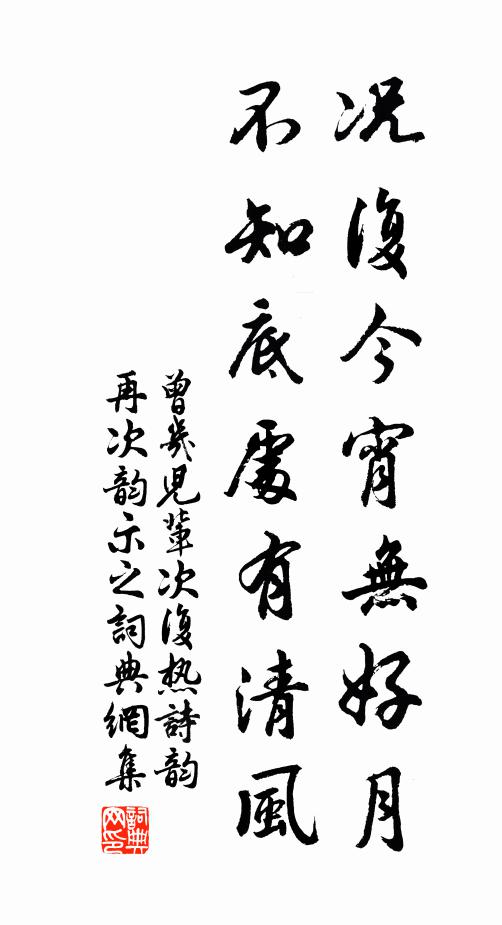 况復今宵無好月
不知底處有清風
曾幾児輩次復热詩韵
再次韵示之詞典網集
詞典
网印